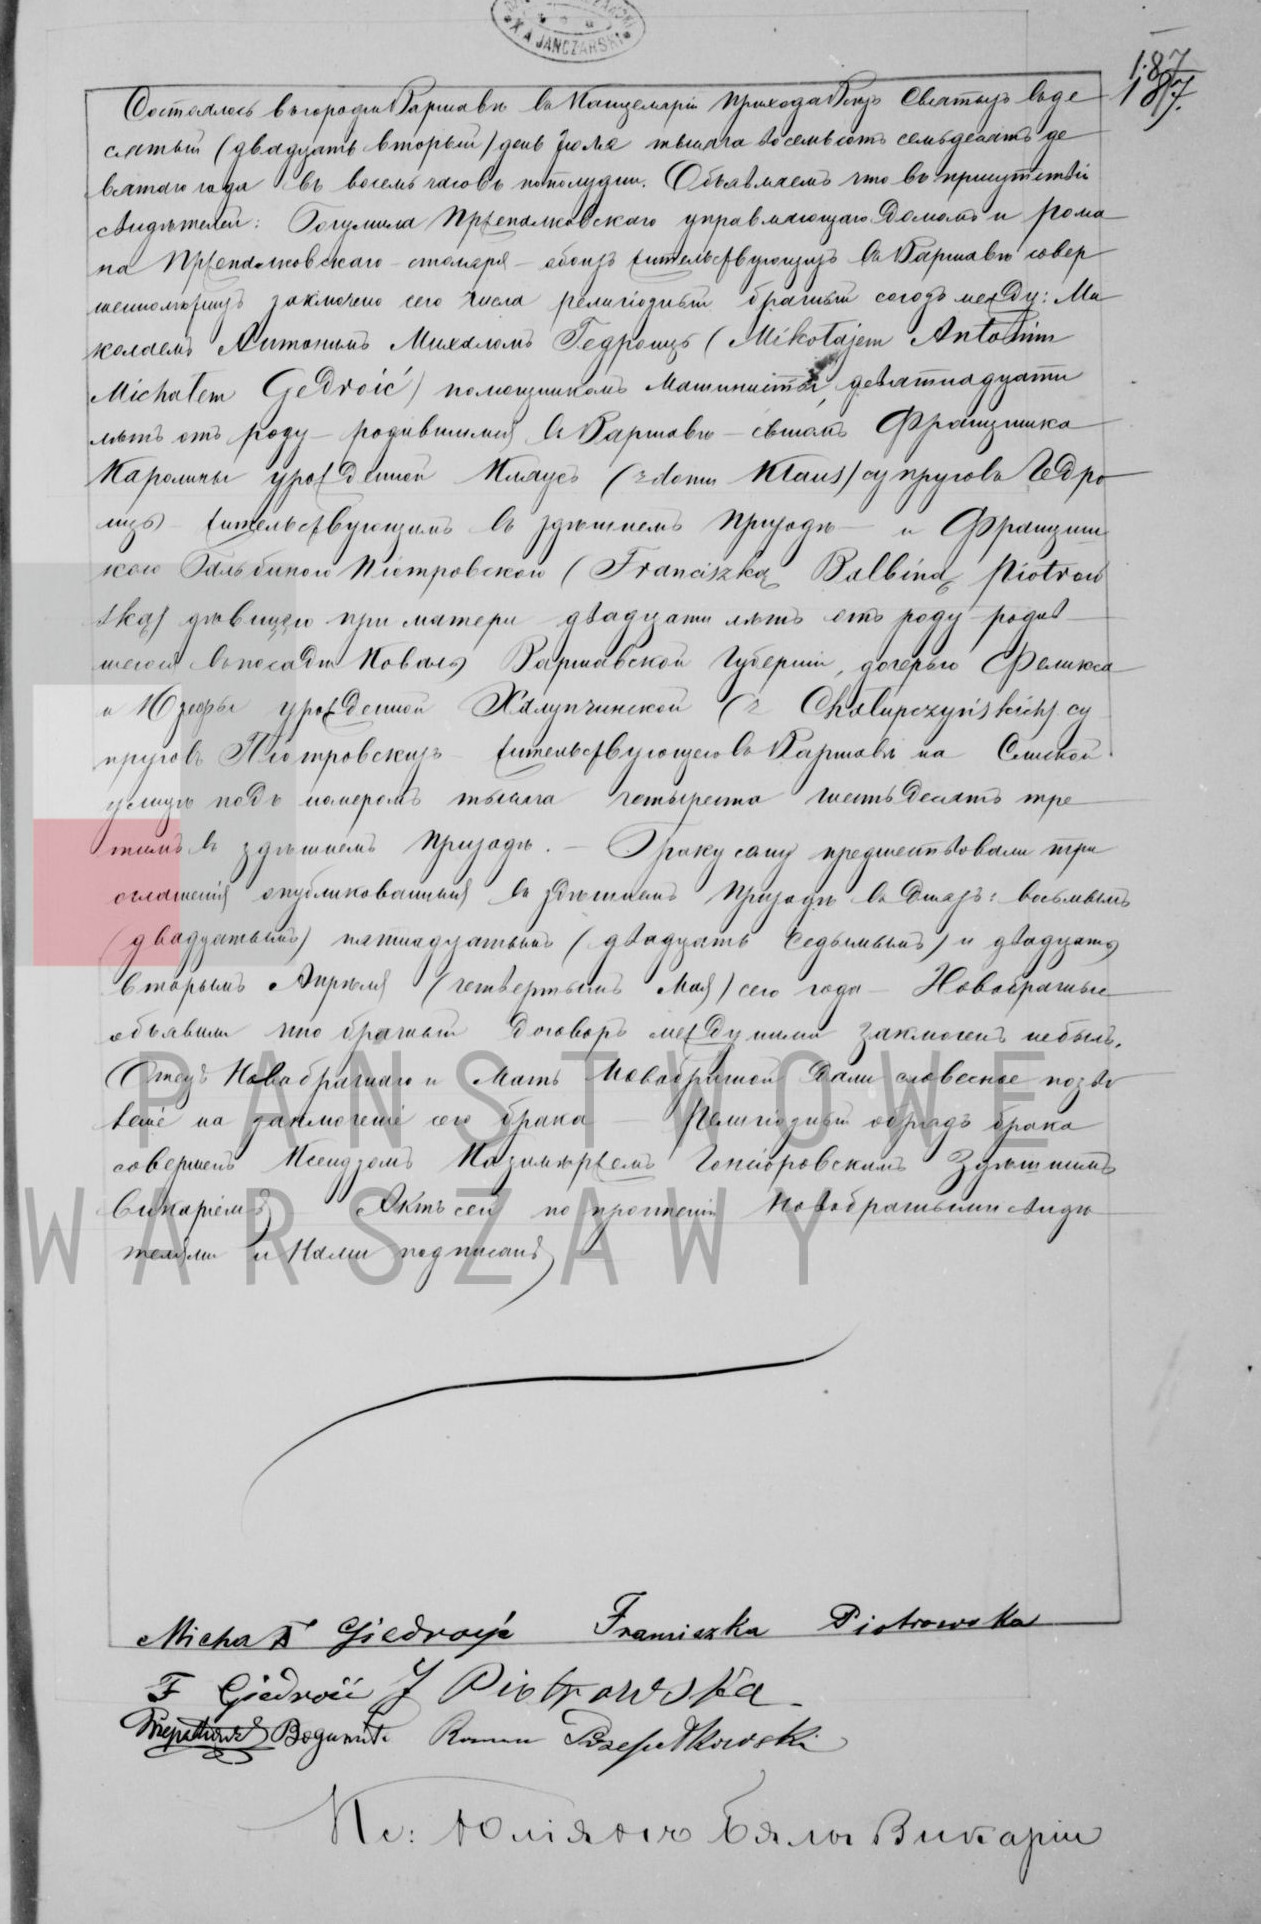 X A JANCZARSKI
187
187.
Состоялось въ городѣ Варшавѣ въ Канцеляріи Прихода Всѣхъ Святыхъ въ де
сятый (двадцать вторый) день Іюля тысяча восемьсотъ семьдесятъ де
вятаго года въ восемь часовъ пополудни. Объявляемъ что въ присутствіи
свидѣтелей: Богумила Пржепалковскаго управляющаго Домомъ и Рома
на Пржепалковскаго - столяра - обоихъ жительствующихъ въ Варшавѣ совер
шеннолѣтнихъ заключено сего числа религіозный брачный союзъ между: Ми
колаемъ Антонимъ Михаломъ Гедройцъ (Mikołajem Antonim
Michałem Gedroić) помощникомъ Машиниста, девятнадцати
лѣтъ отъ роду - родившимся въ Варшавѣ - сыномъ Францишка
Каролины урожденной Клаусъ (z domu Klaus) супруговъ Гедро
ицъ - жительствующимъ въ здѣшнемъ Приходѣ - и Францишкою
кою Бальбиною Піотровскою (Franciszką Balbiną Piotrow
ską) дѣвицею при матери двадцати лѣтъ отъ роду родив
шеюся въ посадѣ Коваль Варшавской Губерніи, дочерью Феликса
и Юзефы урожденной Халупчинской (z Chałupczyńskich) су
пруговъ Піотровскихъ жительствующею въ Варшавѣ на Слиской
улицѣ подъ номеромъ тысяча четыреста шестьдесятъ тре
тимъ въ здѣшнемъ Приходѣ. - Браку сему предшествовали три
оглашенія опубликованныя въ здѣшнемъ Приходѣ въ дняхъ: восьмымъ
(двадцатымъ) пятнадцатымъ (двадцать седьмымъ) и двадцать
вторымъ Апрѣля (четвертымъ Мая) сего года - Новобрачные
объявили что брачный договоръ между ними заключенъ не былъ.
Отецъ Новобрачнаго и Мать Новобрачной дали словесное позво
леніе на заключеніе сего брака - Религіозный обрядъ брака
совершенъ Ксендзомъ Казимиржемъ Гонсіоровскимъ Здѣшнимъ
Викаріемъ Актъ сей по прочтеніи Новобрачными свидѣ
телями и Нами подписанъ
PAŃSTWOWE
WARSZAWY
Michał Giedroyć Franciszka Piotrowska
F Giedroić J Piotrowska
Przepałkowski Bogumił Roman Przepałkowski
Кс: Юліянъ Бялы Викарій